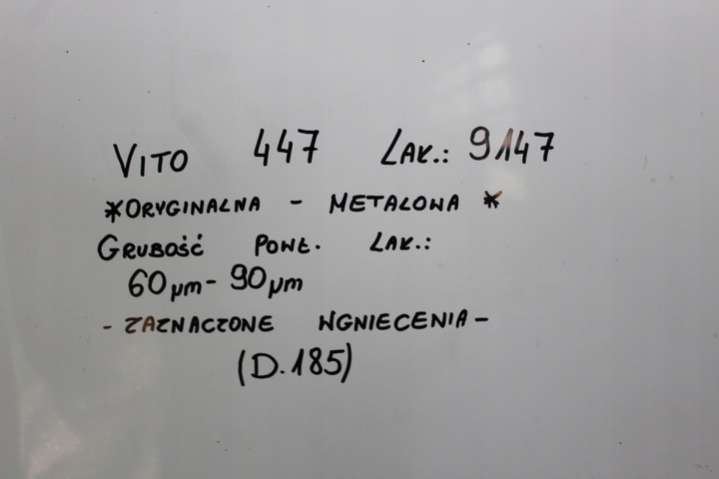 VITO 447 LAK.: 9147
*ORYGINALNA - METALOWA *
GRUBOŚĆ POWŁ. LAK.:
60µm - 90µm
- ZAZNACZONE WGNIECENIA -
(D.185)